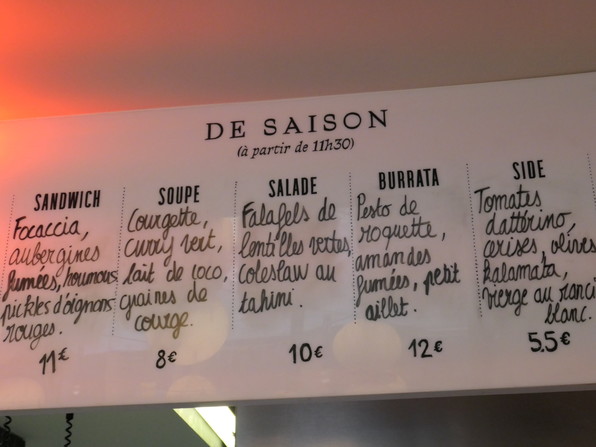 DE SAISON
(à partir de 11h30)
SANDWICH
Focaccia,
aubergines
fumées, houmous
pickles d'oignons
rouges.
11€
SOUPE
Courgette,
curry vert,
lait de coco,
graines de
courge.
8€
SALADE
Falafels de
lentilles vertes,
coleslaw au
tahini.
10€
BURRATA
Pesto de
roquette,
amandes
fumées, petit
aillet.
12€
SIDE
Tomates
dattérino,
cerises, olives
kalamata,
vierge au ranci
blanc.
5.5€